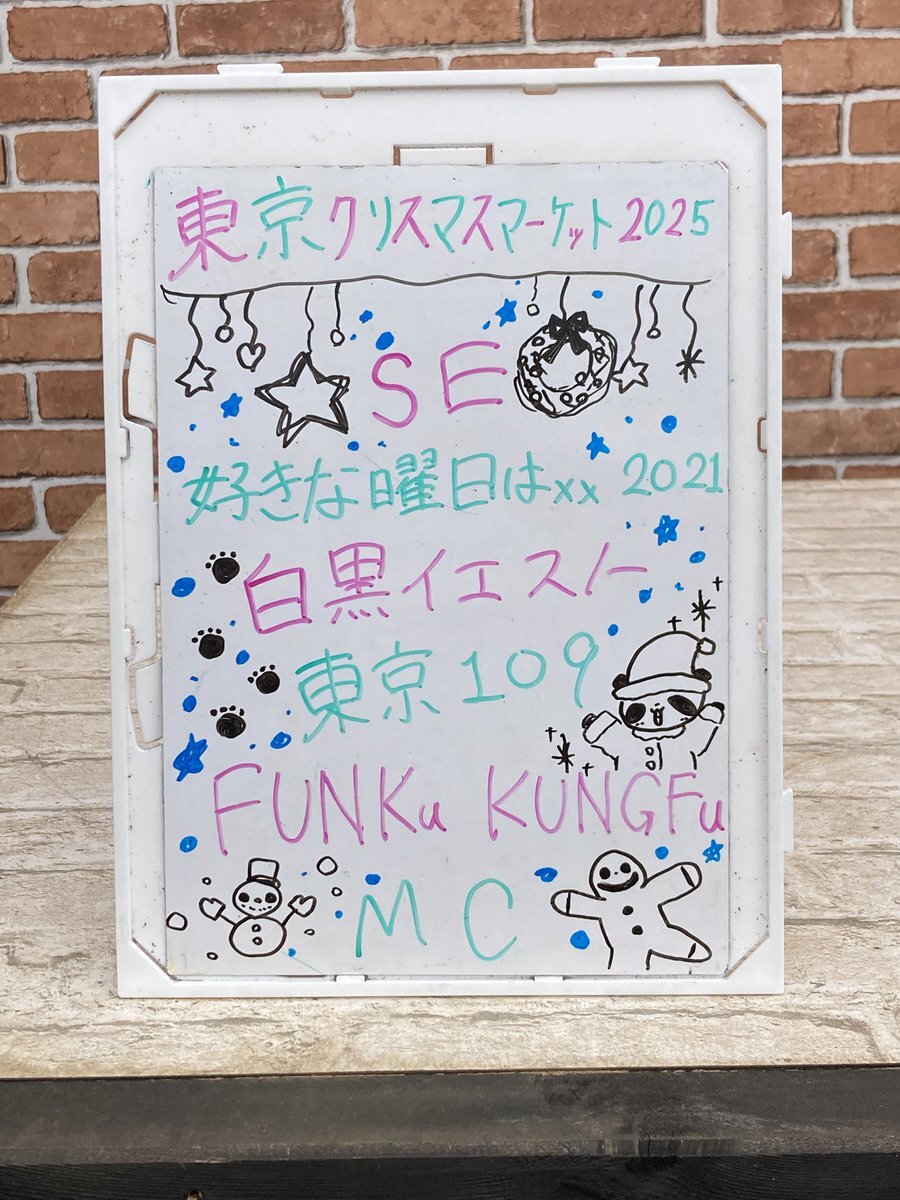 東京クリスマスマーケット2025
SE
好きな曜日はxx 2021
白黒イエスノー
東京109
FUNKu KUNGFu
MC